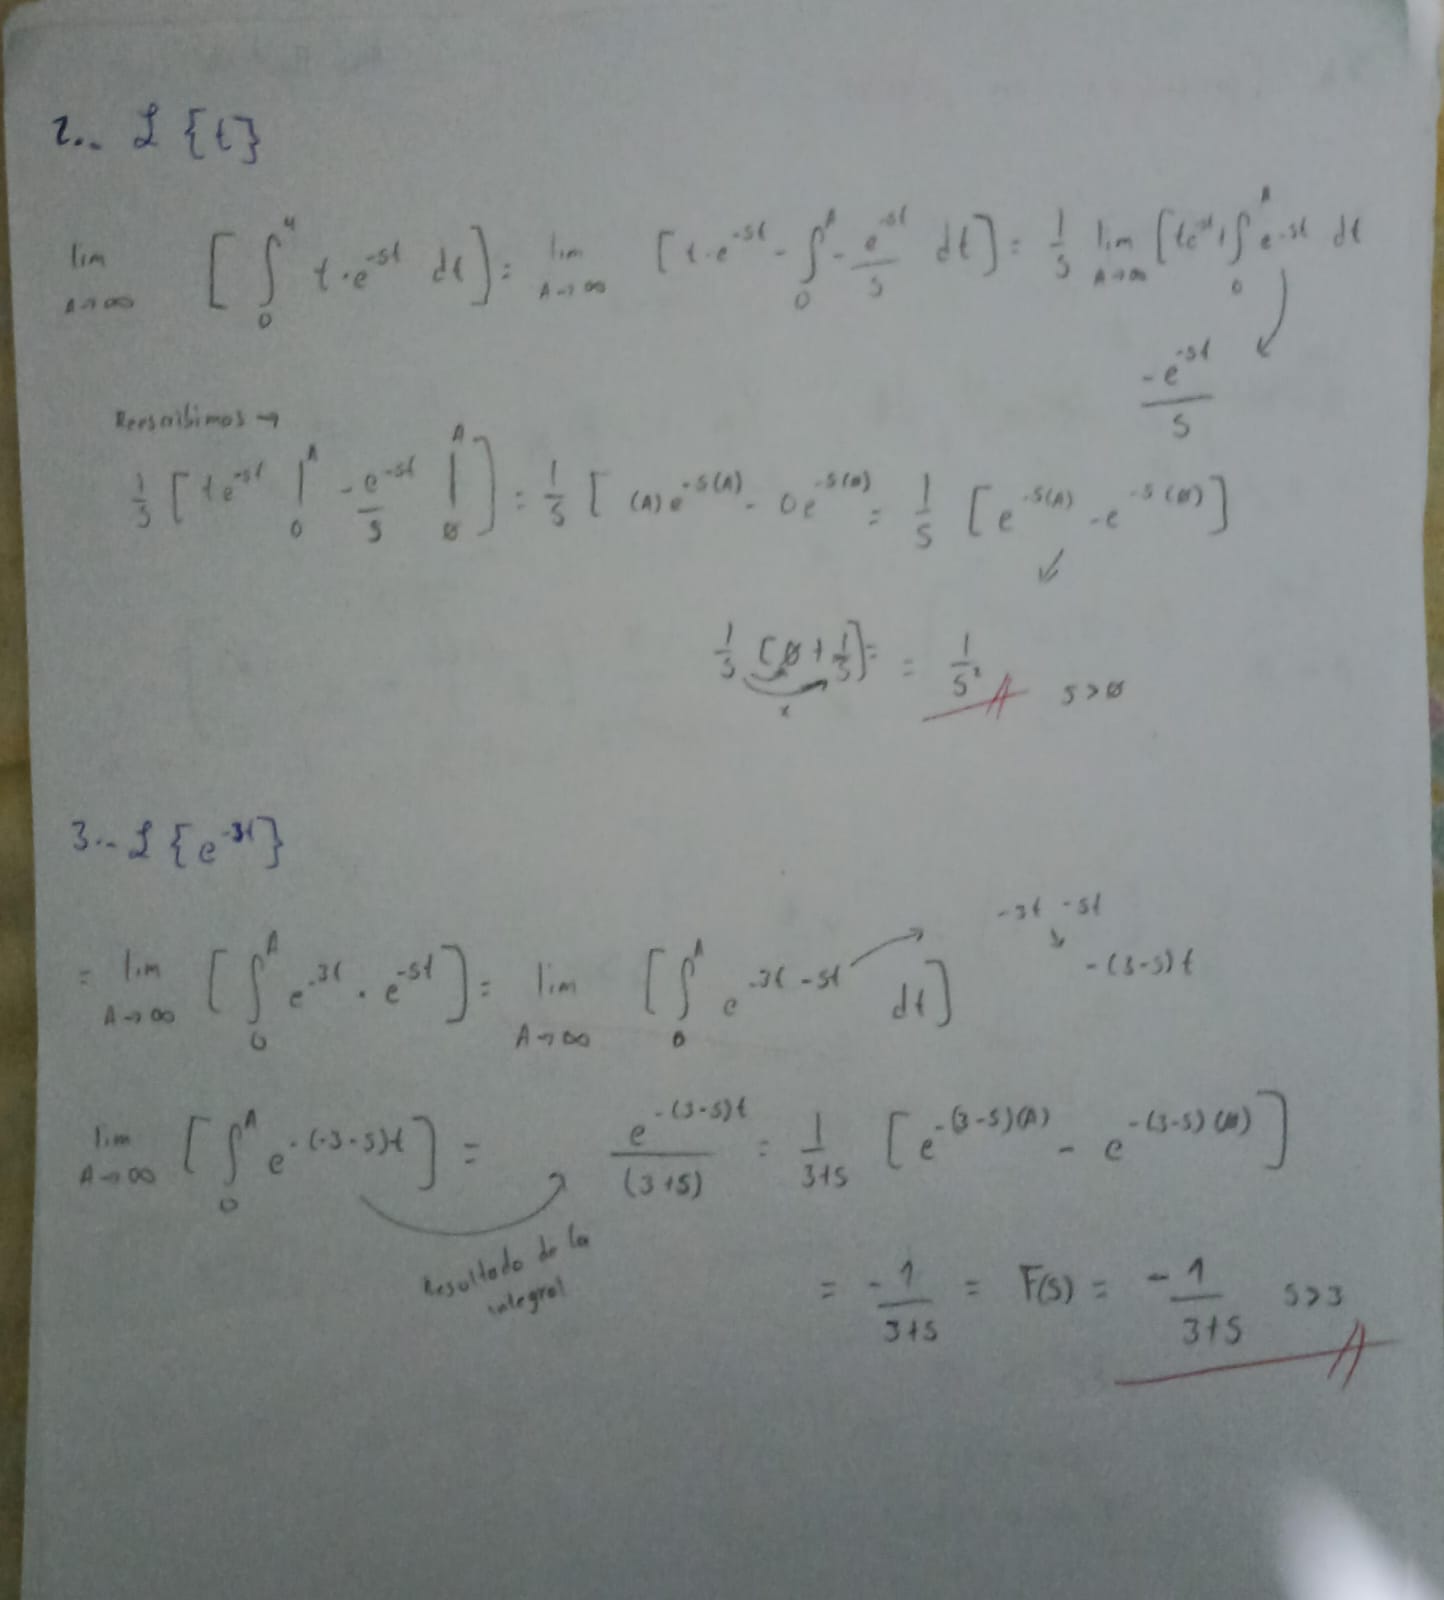 2.- ℒ{t}
lim A→∞ [∫₀ᴬ t·e^-st dt] = lim A→∞ [t·e^-st - ∫₀ᴬ - e^-st/s dt] = 1/s lim A→∞ [te^-st + ∫₀ᴬ e^-st dt
-e^-st/s
Reescribimos →
1/s [te^-st |₀ᴬ - e^-st/s |₀ᴬ] = 1/s [(A)e^-s(A) - 0e^-s(0) = 1/s [e^-s(A) - e^-s(0)]
1/s [0 + 1/s] = = 1/s² s>0
x
3.- ℒ{e^-3t}
-3t -st
= lim A→∞ [∫₀ᴬ e^-3t · e^-st] = lim A→∞ [∫₀ᴬ e^-3t-st dt] -(3-s)t
lim A→∞ [∫₀ᴬ e^-(-3-s)t] = e^-(3-s)t/(3+s) = 1/3+s [e^-(3-s)(A) - e^-(3-s)(0)]
Resultado de la
integral
= -1/3+s = F(s) = -1/3+s s>3